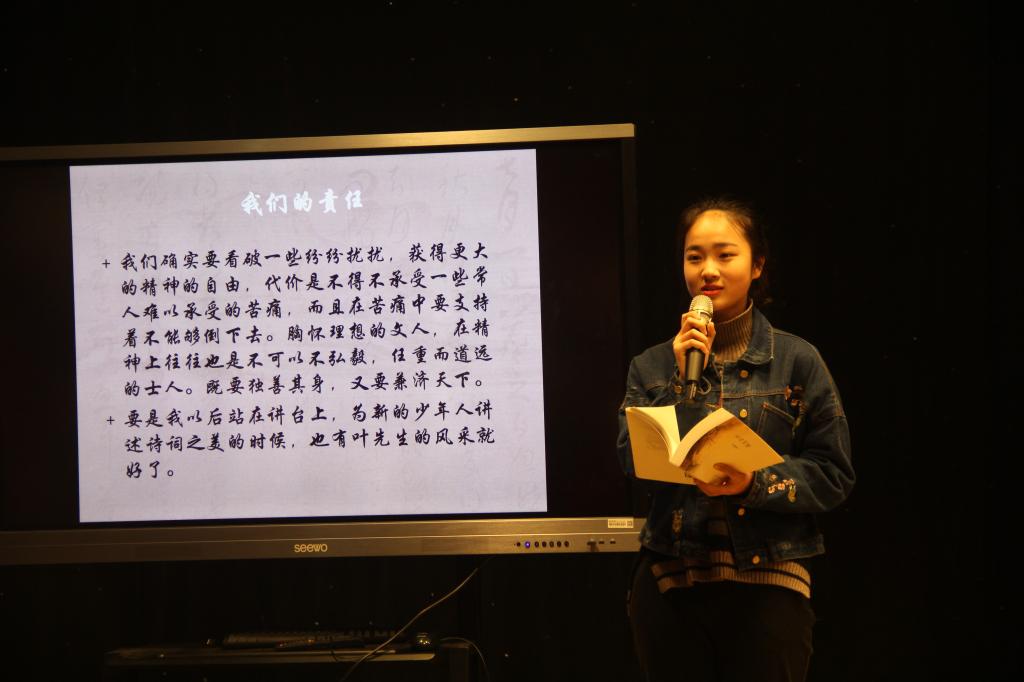 我们的责任
+ 我们确实要看破一些纷纷扰扰，获得更大
的精神的自由，代价是不得不承受一些常
人难以承受的苦痛，而且在苦痛中要支持
着不能够倒下去。胸怀理想的文人，在精
神上往往也是不可以不弘毅，任重而道远
的士人。既要独善其身，又要兼济天下。
+ 要是我以后站在讲台上，为新的少年人讲
述诗词之美的时候，也有叶先生的风采就
好了。
seewo